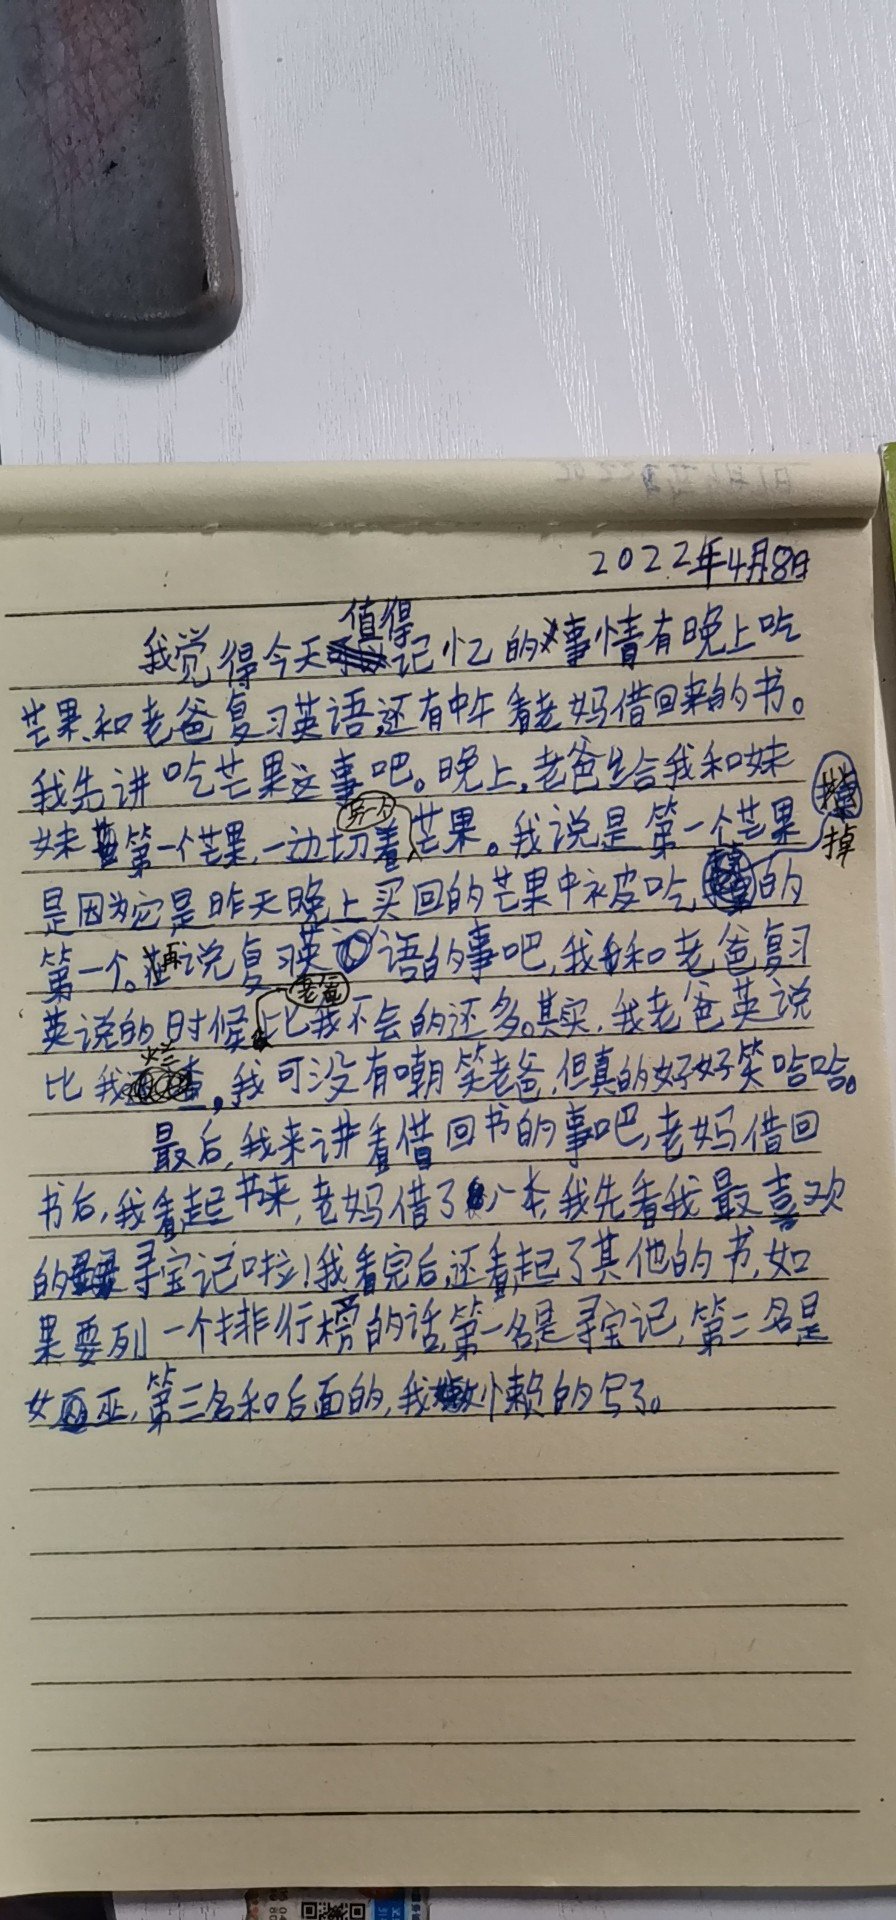 2022年4月8日
我觉得今天值得记忆的事情有晚上吃
芒果、和老爸复习英语,还有中午看老妈借回来的书。
我先讲吃芒果这事吧。晚上,老爸给我和妹
妹第一个芒果,一边切着另一个芒果。我说是第一个芒果
是因为它是昨天晚上买回的芒果中被皮吃掉的
第一个。再说复习英语的事吧,我和老爸复习
英说的时候老爸比我不会的还多。其实,我老爸英说
比我烂,我可没有嘲笑老爸,但真的好好笑哈哈。
最后,我来讲看借回书的事吧,老妈借回
书后,我看起书来,老妈借了八本,我先看我最喜欢
的寻宝记啦!我看完后,还看起了其他的书,如
果要列一个排行榜的话,第一名是寻宝记,第二名是
女巫,第三名和后面的,我懒的写了。